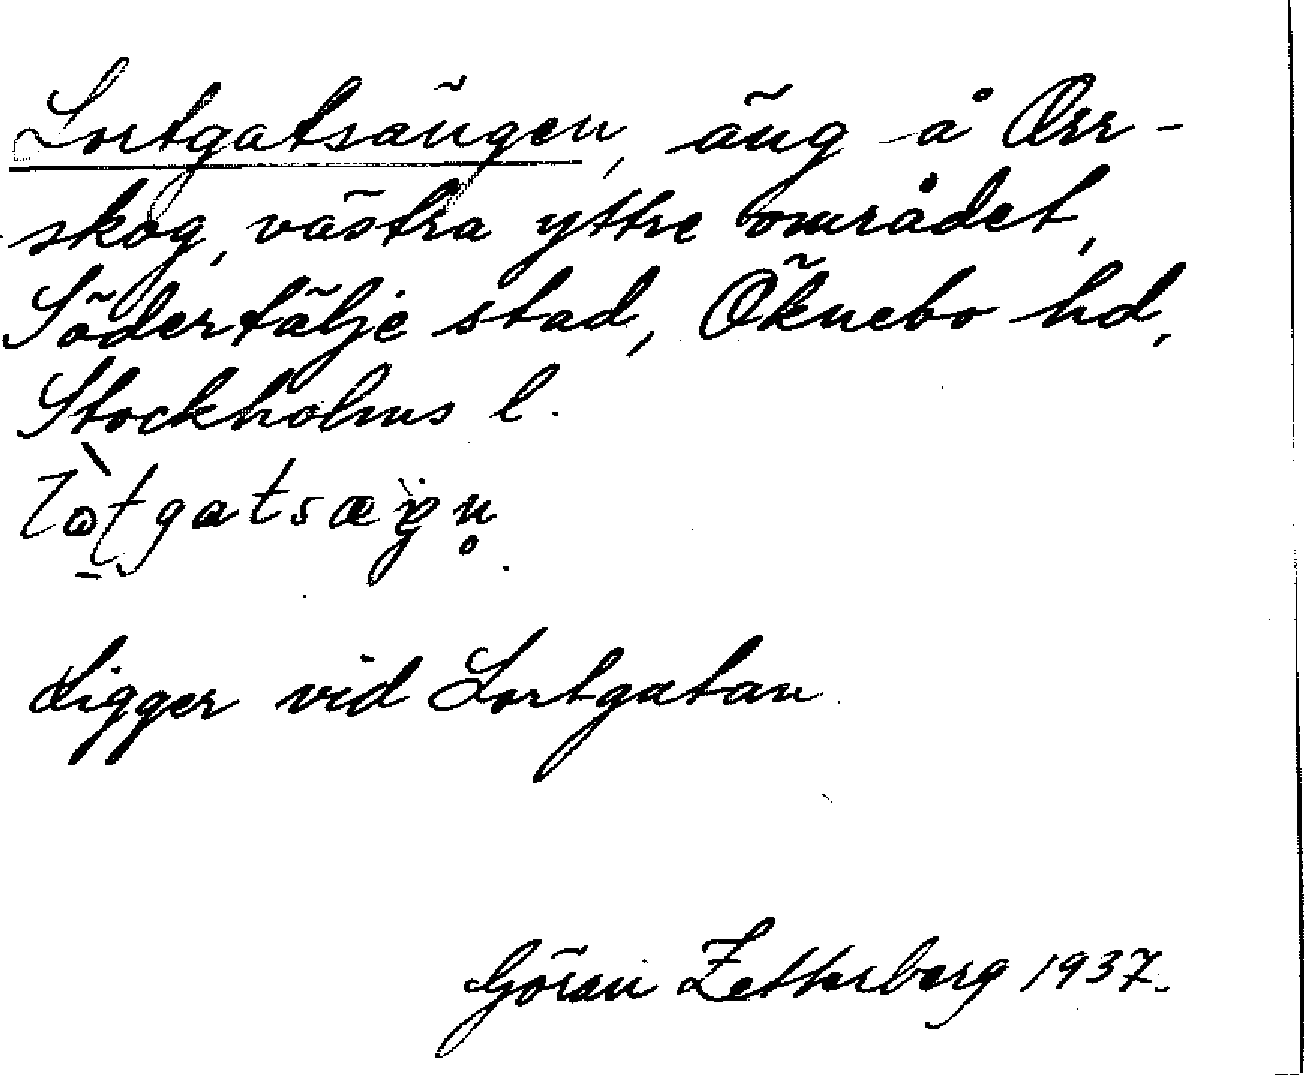 Lortgatsängen, äng å Orr-
skog, västra yttre området,
Södertälje stad, Öknebo hd,
Stockholms l.
Ligger vid Lortgatan
Göran Zetterberg 1937.